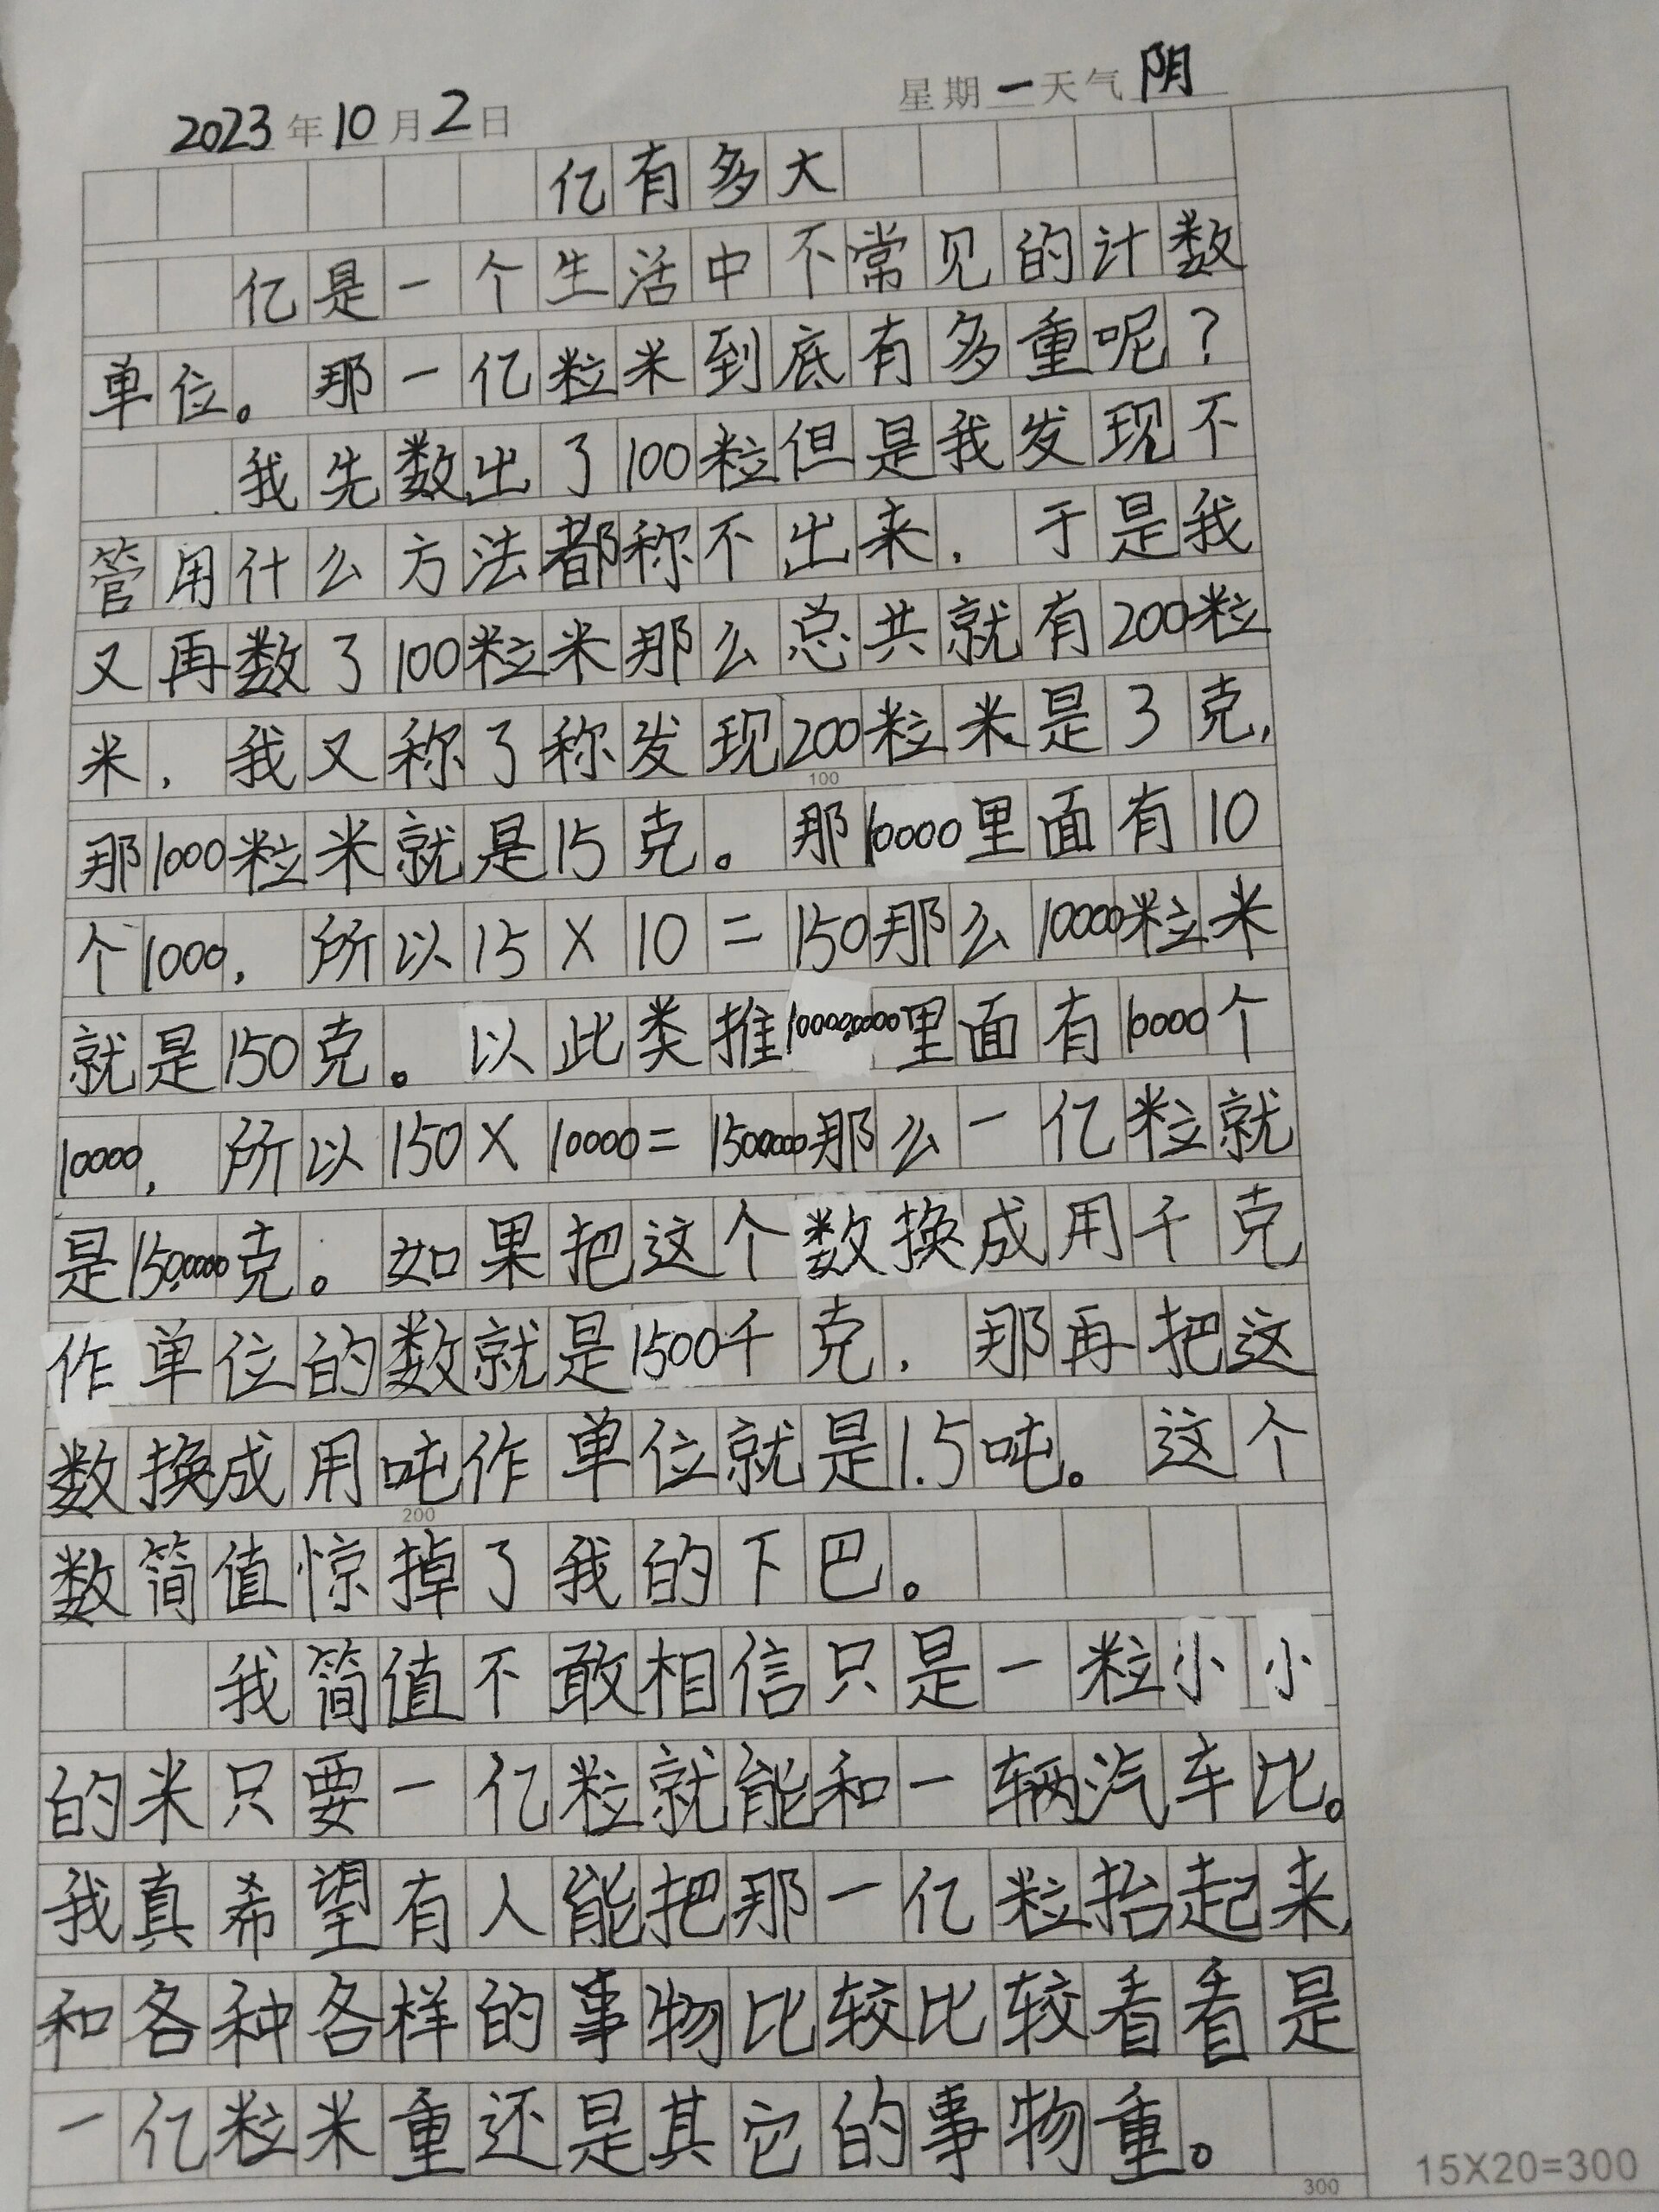 2023年10月2日 星期一天气阴
亿有多大
亿是一个生活中不常见的计数
单位。那一亿粒米到底有多重呢？
我先数出了100粒但是我发现不
管用什么方法都称不出来，于是我
又再数了100粒米那么总共就有200粒
米，我又称了称发现200粒米是3克，
100
那1000粒米就是15克。那10000里面有10
个1000，所以15×10=150那么10000粒米
就是150克。以此类推100000000里面有10000个
10000，所以150×10000=1500000那么一亿粒就
是1500000克。如果把这个数换成用千克
作单位的数就是1500千克，那再把这
数换成用吨作单位就是1.5吨。这个
200
数简值惊掉了我的下巴。
我简值不敢相信只是一粒小小
的米只要一亿粒就能和一辆汽车比。
我真希望有人能把那一亿粒抬起来，
和各种各样的事物比较比较看看是
一亿粒米重还是其它的事物重。
300
15X20=300